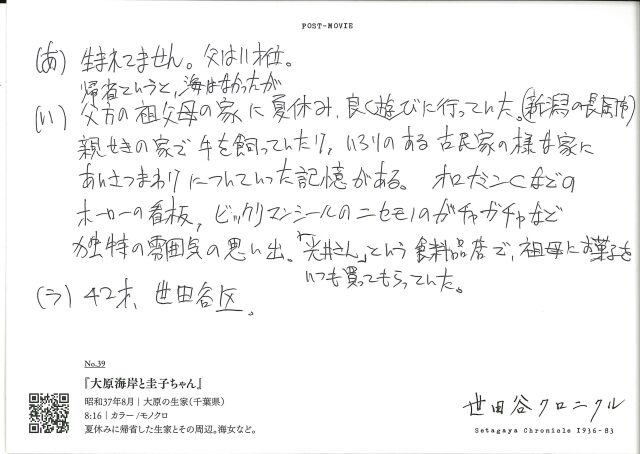 POST-MOVIE
(あ) 生まれてません。父は11才位。
帰省というと、海はなかったが
(い) 父方の祖父母の家に夏休み、良く遊びに行っていた。(新潟の長岡市)
親せきの家で牛を飼っていたり、いろりのある古民家の様な家に
あいさつまわりについていった記憶がある。 オロナミンCなどの
ホーローの看板, ビックリマンシールのニセモノのガチャガチャなど
独特の雰囲気の思い出。「光井さん」という食料品店で、祖母にお菓子を
いつも買ってもらっていた。
(う) 42才、世田谷区。
No.39
『大原海岸と圭子ちゃん』
昭和37年8月|大原の生家(千葉県)
8:16|カラー/モノクロ
夏休みに帰省した生家とその周辺。海女など。
世田谷クロニクル
Setagaya Chronicle 1936-83